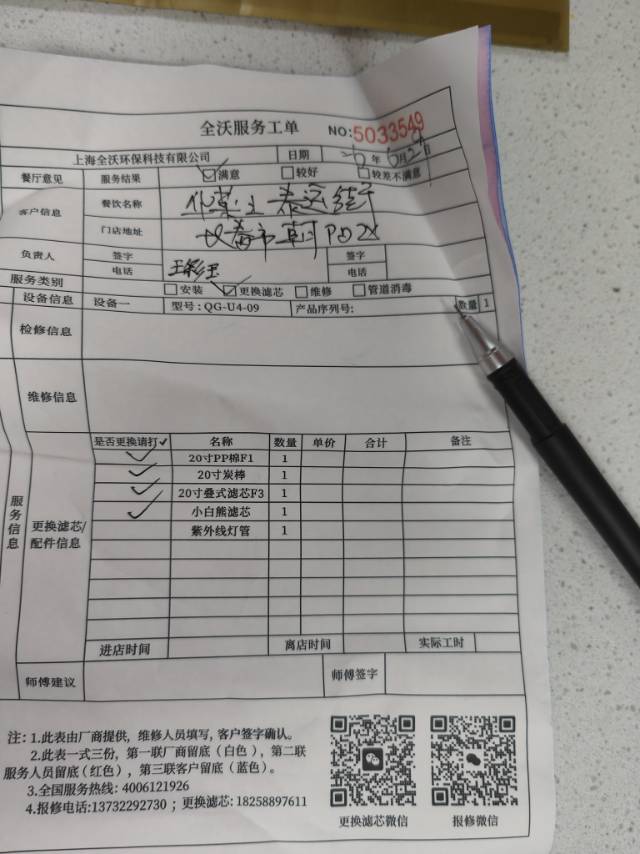 全沃服务工单 NO:5033549
上海全沃环保科技有限公司 日期 年6月29日
餐厅意见 服务结果 ☑满意 □较好 □较差不满意
客户信息 餐饮名称
门店地址
负责人 签字 签字
电话 电话
服务类别 □安装 ☑更换滤芯 □维修 □管道消毒
设备信息 设备一 型号:QG-U4-09 产品序列号: 数量 1
检修信息
维修信息
服务信息
更换滤芯/配件信息
是否更换请打✓ 名称 数量 单价 合计 备注
✓ 20寸PP棉F1 1
✓ 20寸炭棒 1
✓ 20寸叠式滤芯F3 1
✓ 小白熊滤芯 1
紫外线灯管 1
进店时间 离店时间 实际工时
师傅建议 师傅签字
注:1.此表由厂商提供,维修人员填写,客户签字确认。
2.此表一式三份,第一联厂商留底(白色),第二联
服务人员留底(红色),第三联客户留底(蓝色)。
3.全国服务热线:4006121926
4.报修电话:13732292730 ;更换滤芯:18258897611
更换滤芯微信 报修微信